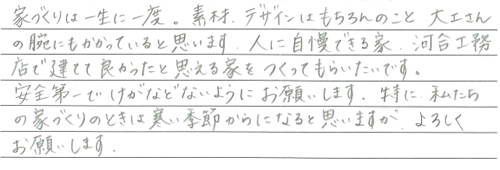 家づくりは一生に一度。素材、デザインはもちろんのこと 大工さん
の腕にもかかっていると思います。人に自慢できる家、河合工務
店で建てて良かったと思える家をつくってもらいたいです。
安全第一でけがなどないようにお願いします。特に、私たち
の家づくりのときは寒い季節からになると思いますが、よろしく
お願いします。